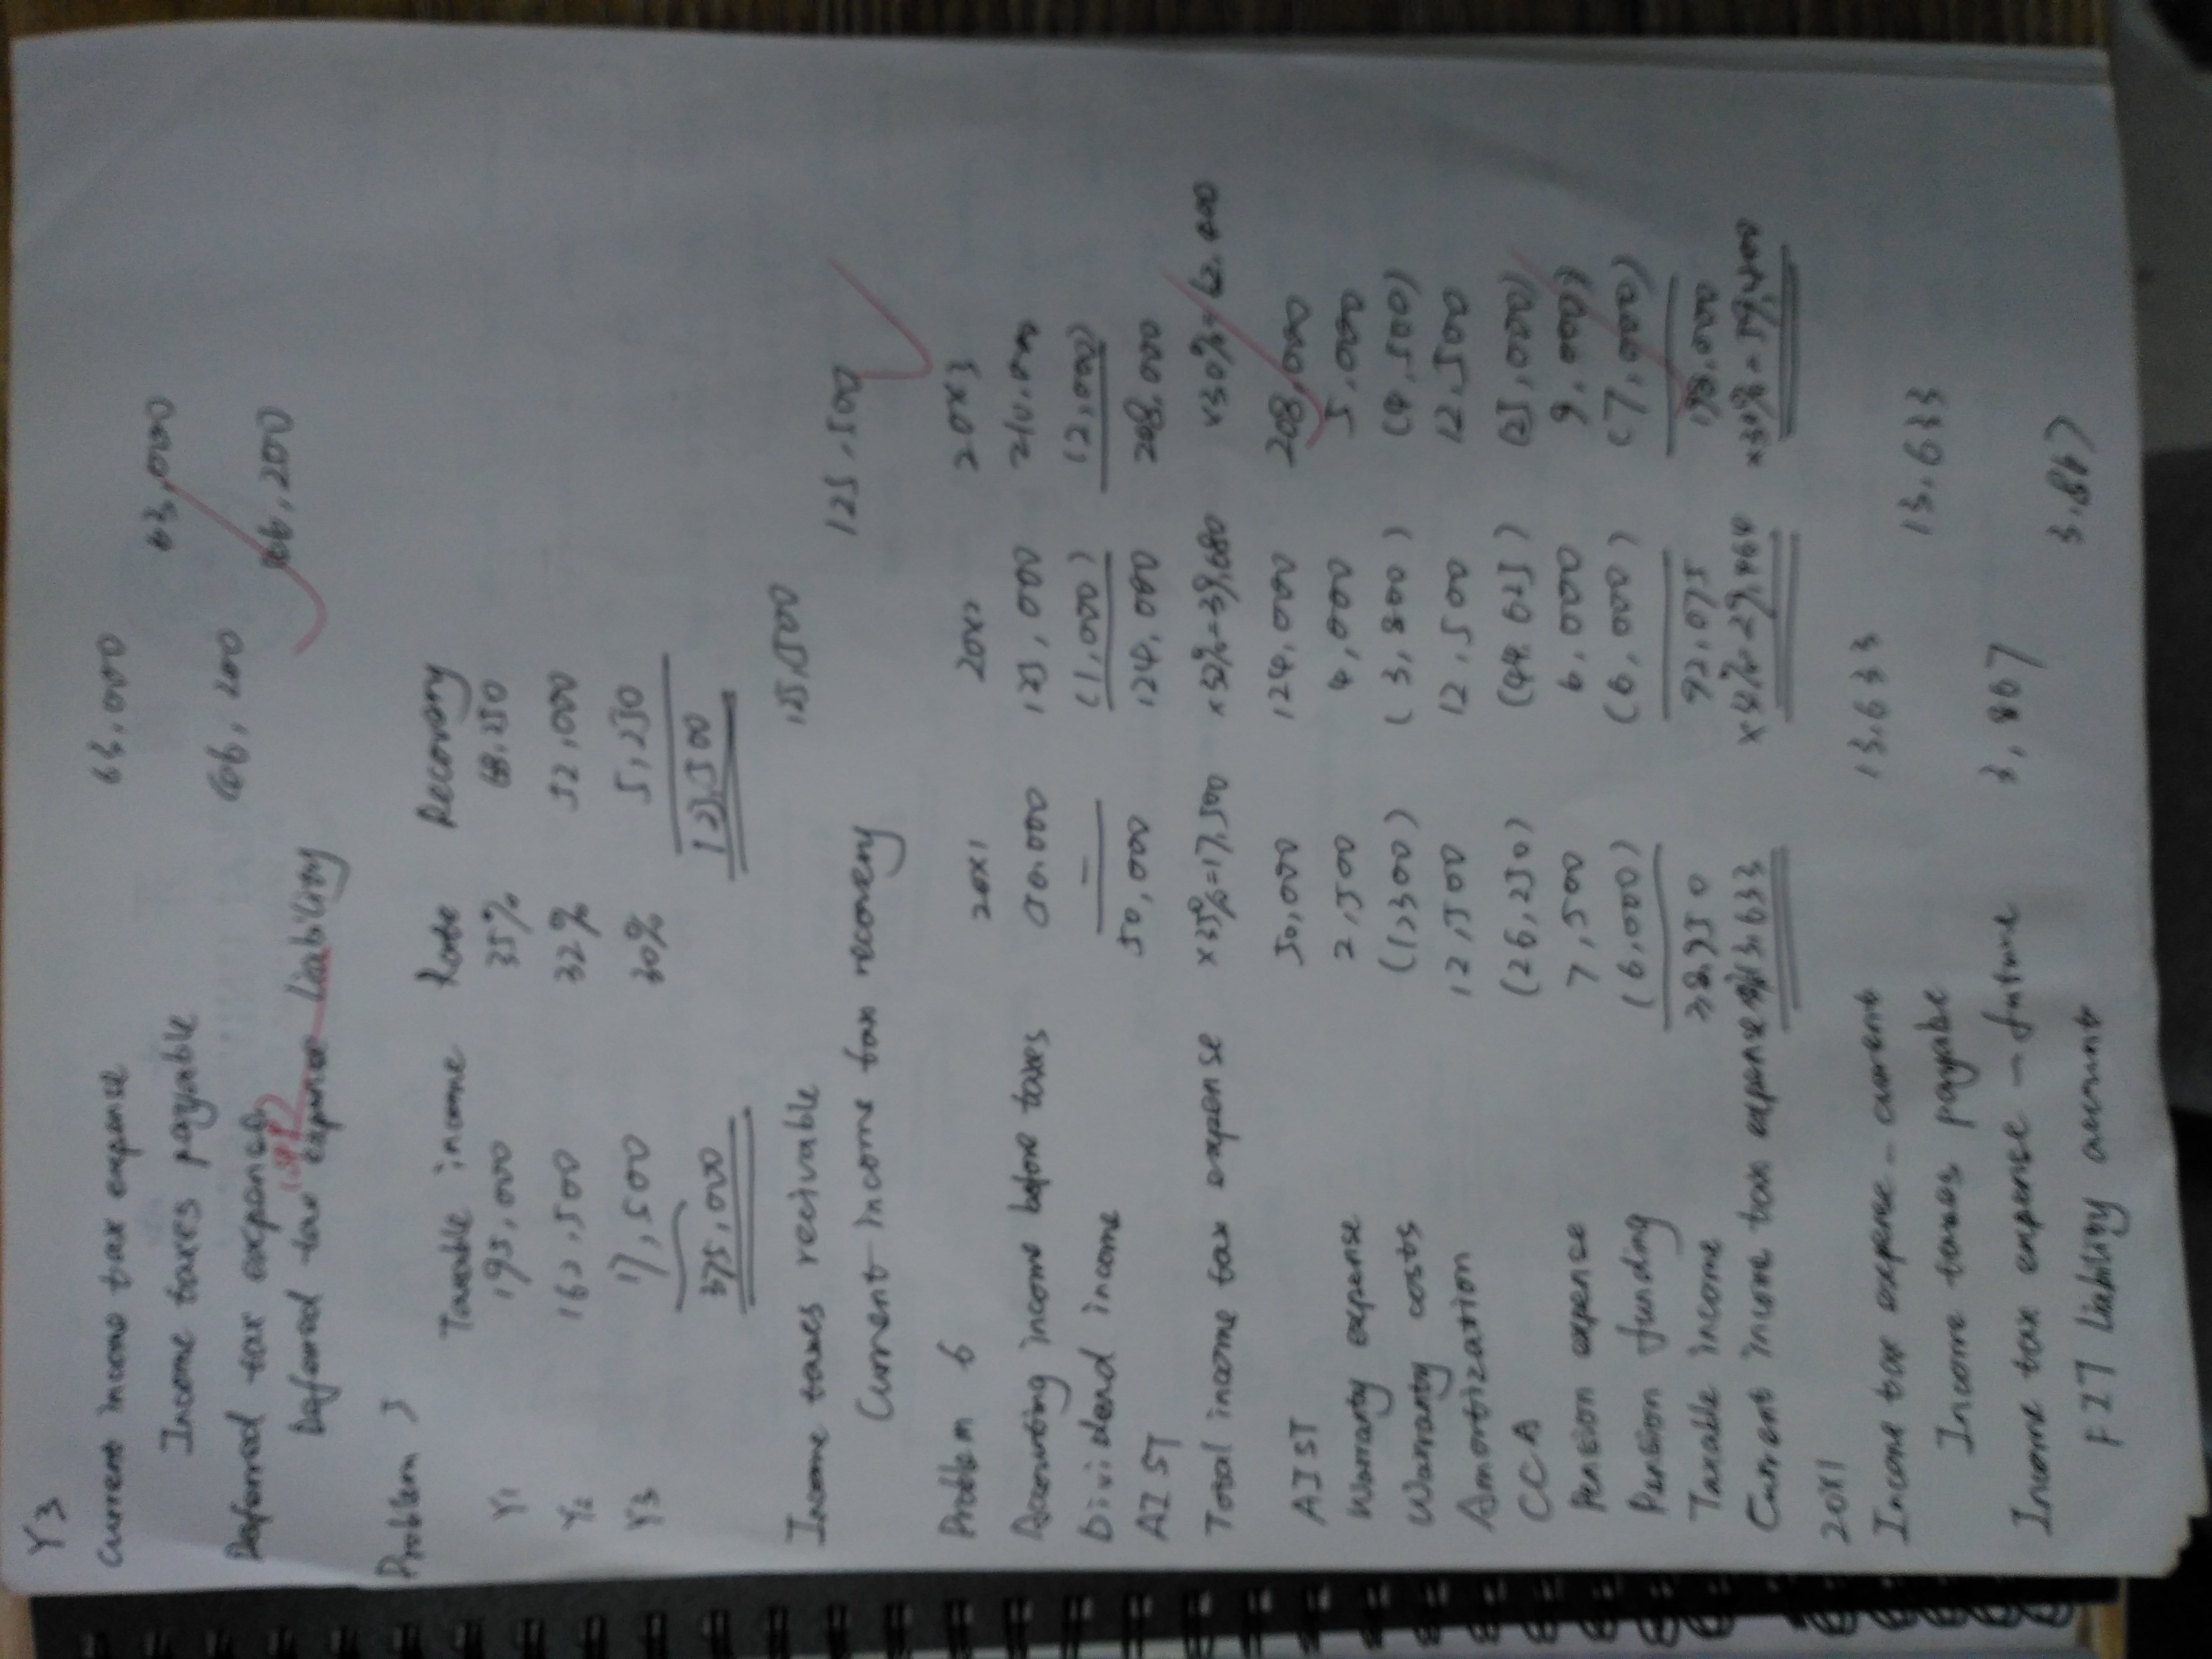 Y3
Current income tax expense 63,000
Income taxes payable 63,000
Deferred tax expense 66,200
Deferred tax expense liability 66,200
Problem 5
Taxable income Rate Recovery
Y1 195,000 35% 68,250
Y2 162,500 32% 52,000
Y3 17,500 30% 5,250
375,000 125,500
Income taxes recivable 125,500
Current income tax recovery 125,500
Problem 6
20X1 20X2 20X3
Accounting income before taxes 50,000 125,000 210,000
Dividend income — (1,000) (2,000)
AIST 50,000 124,000 208,000
Total income tax expense ×35%=17,500 ×32%=39,680 ×30%=62,400
AIST 50,000 124,000 208,000
Warranty expense 2,500 4,000 5,000
Warranty costs (1,300) (3,800) (4,500)
Amortization 12,500 12,500 12,500
CCA (26,250) (44,625) (25,000)
Pension expense 7,500 6,000 9,000
Pension funding (6,000) (6,000) (7,000)
Taxable income 38,950 92,075 198,000
Current income tax expense 13,633 ×32%=29,464 ×30%=59,400
20X1
Income tax expense - current 13,633
Income taxes payabe 13,633
Income tax expense - future 3,867
FIT liability account 3,867